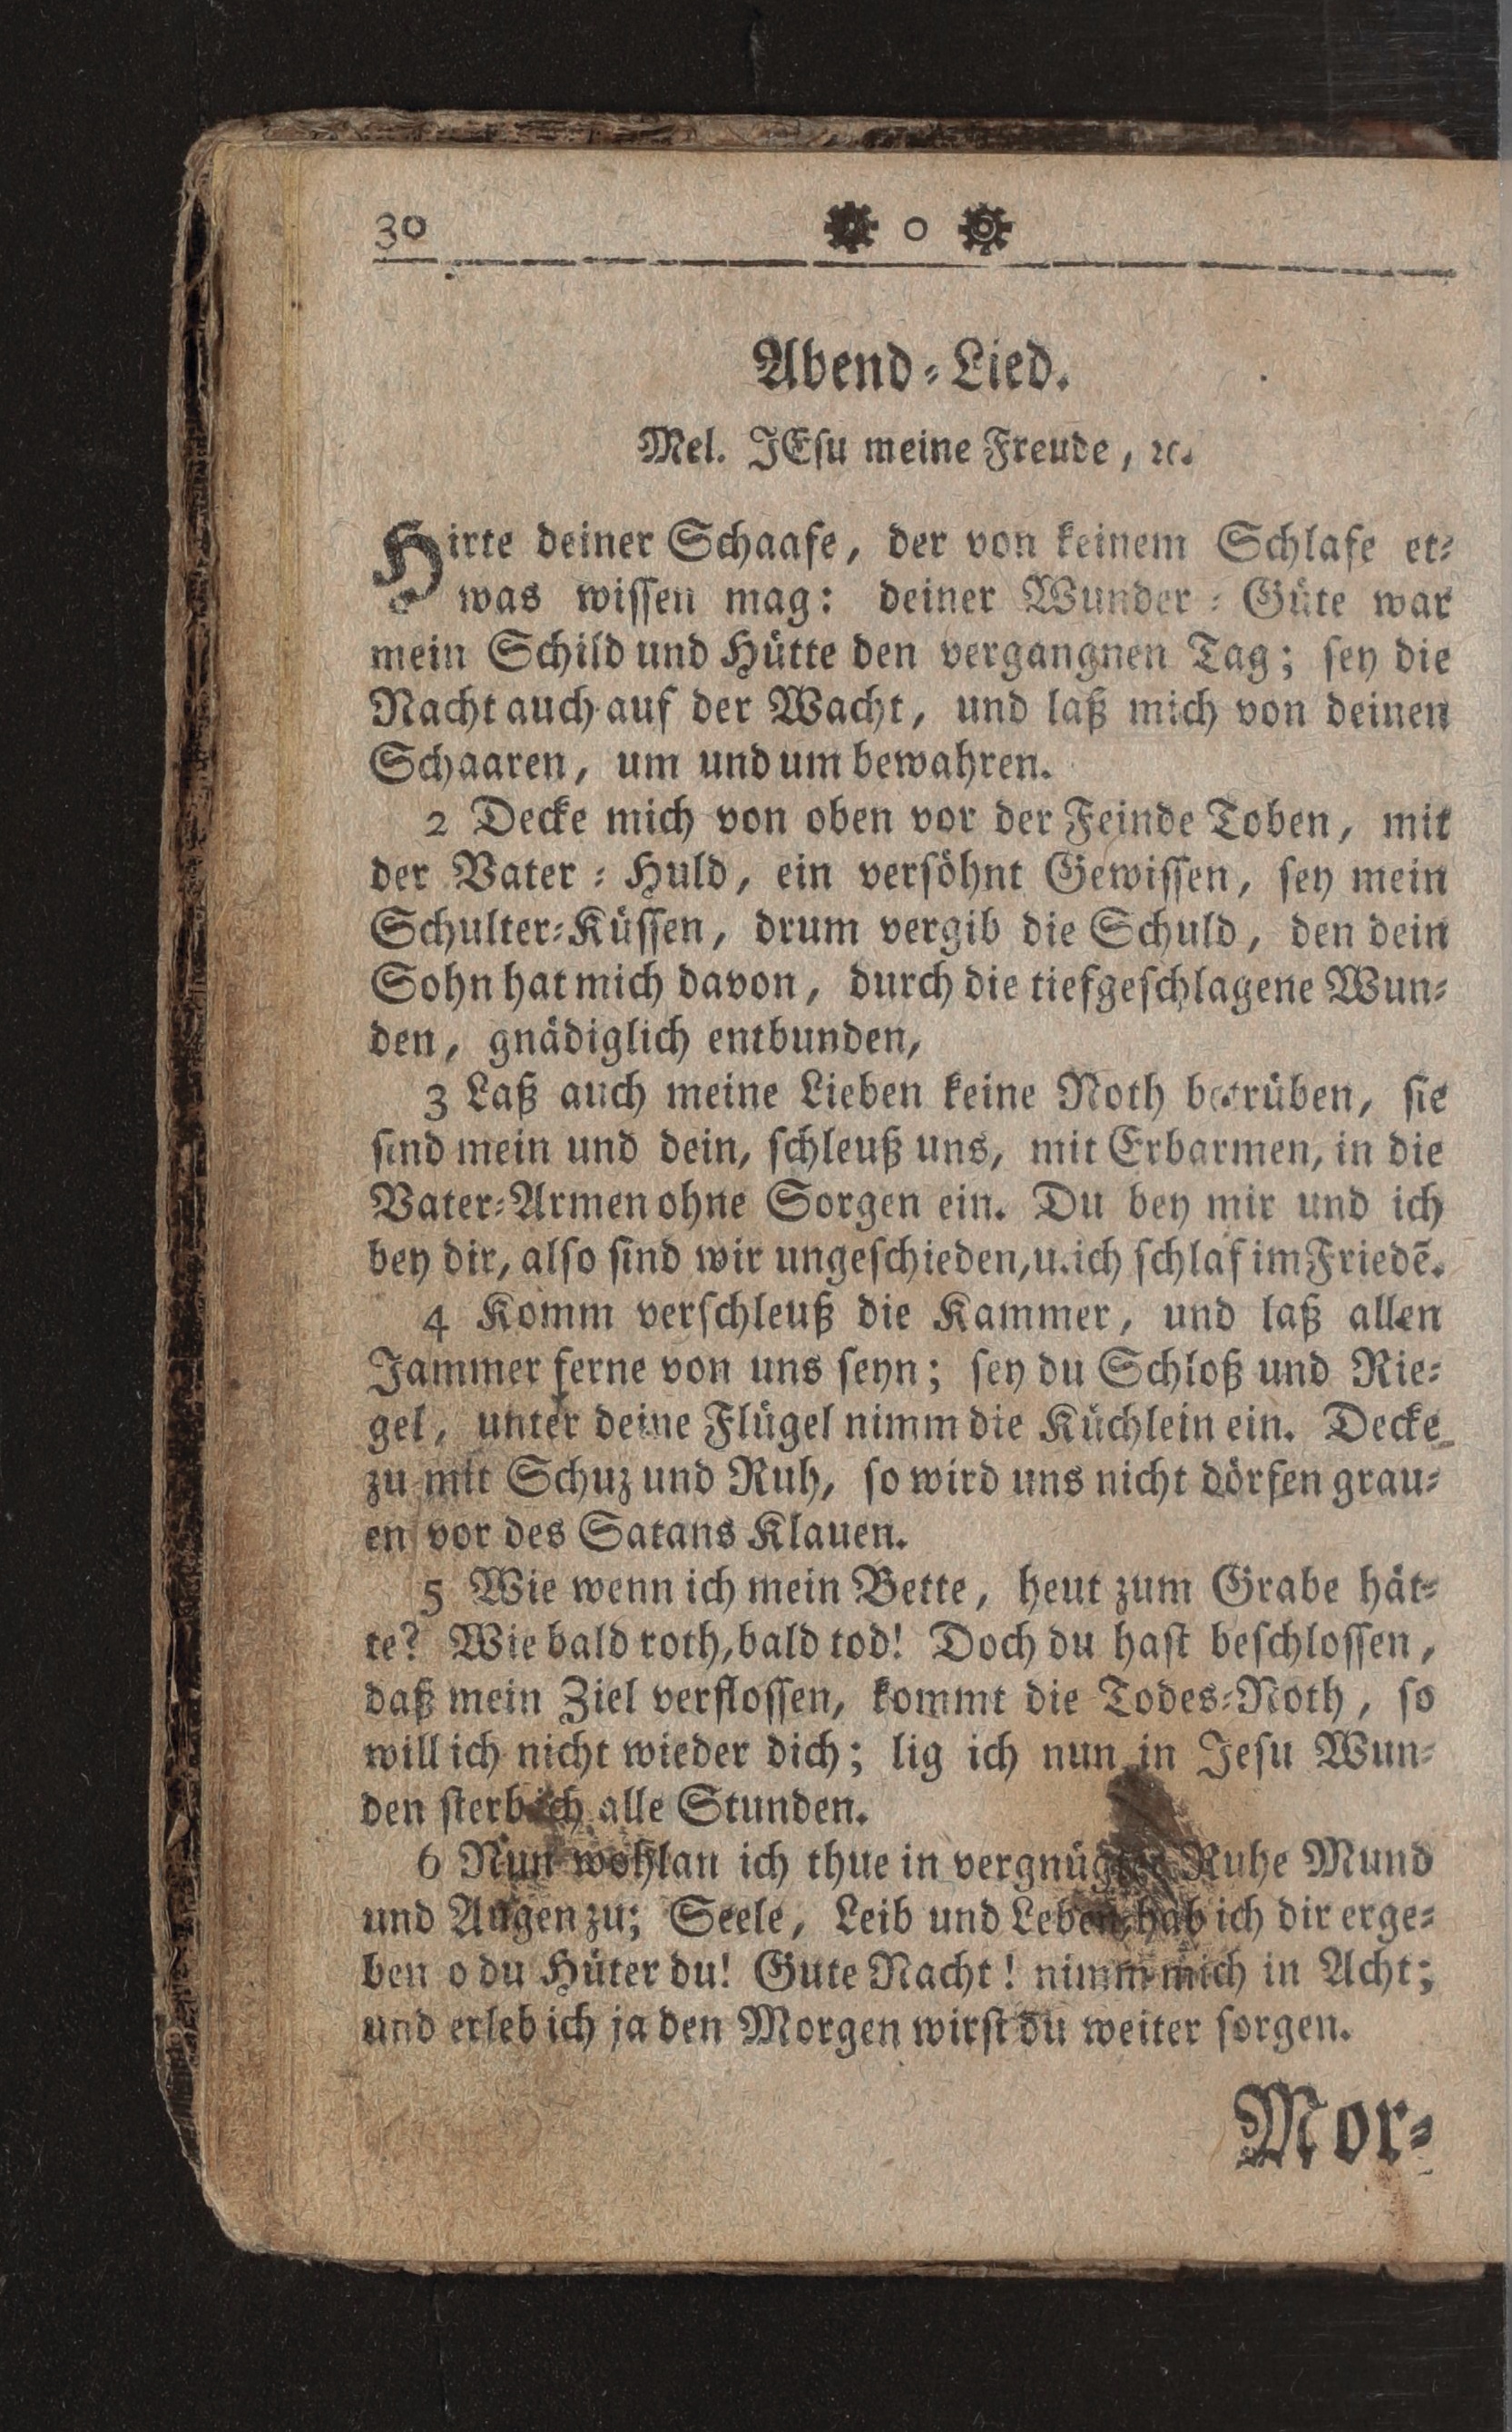 30 o
Abend-Lied.
Mel. JEsu meine Freude, ꝛc.
Hirte deiner Schaafe, der von keinem Schlafe et-
was wissen mag: deiner Wunder-Güte war
mein Schild und Hütte den vergangnen Tag; sey die
Nacht auch auf der Wacht, und laß mich von deinen
Schaaren, um und um bewahren.
2 Decke mich von oben vor der Feinde Toben, mit
der Vater-Huld, ein versöhnt Gewissen, sey mein
Schulter-Küssen, drum vergib die Schuld, den dein
Sohn hat mich davon, durch die tiefgeschlagene Wun-
den, gnädiglich entbunden,
3 Laß auch meine Lieben keine Noth betrüben, sie
sind mein und dein, schleuß uns, mit Erbarmen, in die
Vater-Armen ohne Sorgen ein. Du bey mir und ich
bey dir, also sind wir ungeschieden, u. ich schlaf im Friedē.
4 Komm verschleuß die Kammer, und laß allen
Jammer ferne von uns seyn; sey du Schloß und Rie-
gel, unter deine Flügel nimm die Küchlein ein. Decke
zu mit Schuz und Ruh, so wird uns nicht dörfen grau-
en vor des Satans Klauen.
5 Wie wenn ich mein Bette, heut zum Grabe hät-
te? Wie bald roth, bald tod! Doch du hast beschlossen,
daß mein Ziel verflossen, kommt die Todes-Noth, so
will ich nicht wieder dich; lig ich nun in Jesu Wun-
den sterb ich alle Stunden.
6 Nun wohlan ich thue in Ruhe Mund
und Augen zu; Seele, Leib und Leben hab ich dir erge-
ben o du Hüter du! Gute Nacht! nimm mich in Acht;
und erleb ich ja den Morgen wirst du weiter sorgen.
Mor-